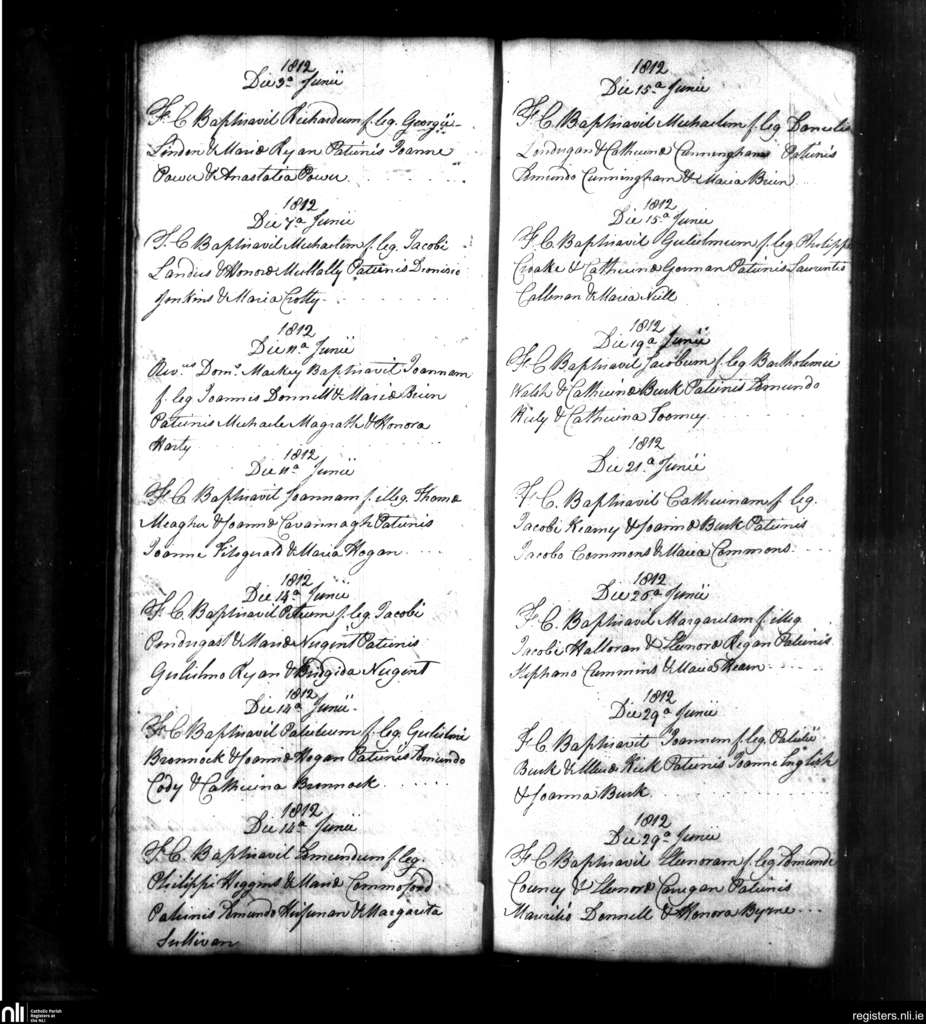 1812
Die 3a Junii
F. C. Baptisavit Richardum f. leg. Georgii
Linden & Mariæ Ryan Patrinis Joanne
Power & Anastatia Power
1812
Die 7a Junii
F. C. Baptisavit Michaelem f. leg. Jacobi
Landers & Honoræ McNally Patrinis Dionisio
Jonkins & Maria Crotty
1812
Die 11a Junii
Revus Doms Mackey Baptisavit Joannam
f. leg Joannis Donnell & Mariæ Brien
Patrinis Michaele Magrath & Honora
Harty
1812
Die 11a Junii
F. C. Baptisavit Joannam f. illeg. Thomæ
Meagher & Joannæ Cavannagh Patrinis
Joanne Fitzgerald & Maria Hogan
1812
Die 14a Junii
F. C. Baptisavit Petrum f. leg. Jacobi
Pendergast & Mariæ Nugent Patrinis
Gulielmo Ryan & Bridgida Nugent
1812
Die 14a Junii
F. C. Baptisavit Patricium f. leg. Gulielmi
Bronnock & Joannæ Hogan Patrinis Edmundo
Cody & Catherina Bronnock
1812
Die 14a Junii
F. C. Baptisavit Edmundum f. leg.
Philippi Higgins & Mariæ Commoford
Patrinis Edmundo Heffernan & Margarita
Sullivan
1812
Die 15a Junii
F. C. Baptisavit Michaelem f. leg Danielis
Londregan & Catherinæ Cunningham Patrinis
Edmundo Cunningham & Maria Brien
1812
Die 15a Junii
F. C. Baptisavit Gulielmum f. leg Philippi
Croake & Catherinæ Gorman Patrinis Laurentio
Callenan & Maria Neill
1812
Die 19a Junii
F. C. Baptisavit Jacobum f. leg Bartholomei
Walsh & Catherinæ Burk Patrinis Edmundo
Kiely & Catherina Toomey
1812
Die 21a Junii
F. C. Baptisavit Catherinam f leg.
Jacobi Kearny & Joannæ Burk Patrinis
Jacobo Commons & Maria Commons
1812
Die 26a Junii
F. C. Baptisavit Margaretam f. illeg
Jacobi Halloran & Elenoræ Regan Patrinis
Stephano Cummins & Maria Hearn
1812
Die 29a Junii
F. C. Baptisavit Joannem f. leg. Patritii
Burk & Mariæ Kirk Patrinis Joanne English
& Joanna Burk
1812
Die 29a Junii
F. C. Baptisavit Elenoram f. leg Edmundi
Councy & Elenoræ Corregan Patrinis
Mauritio Donnell & Honora Byrne
nli
Catholic Parish
Registers at
the NLI
registers.nli.ie